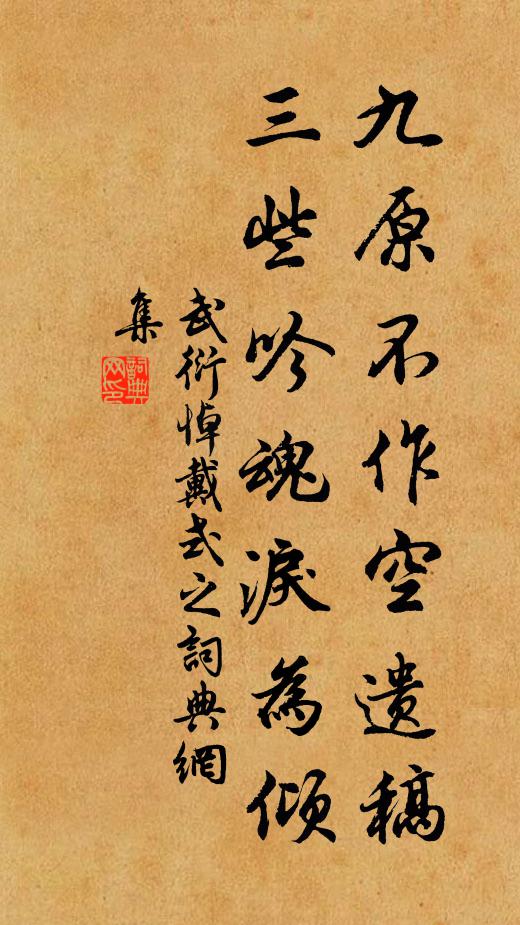 九原不作空遺稿
三些吟魂淚為傾
武衍悼戴式之詞典網
集
詞典
网印